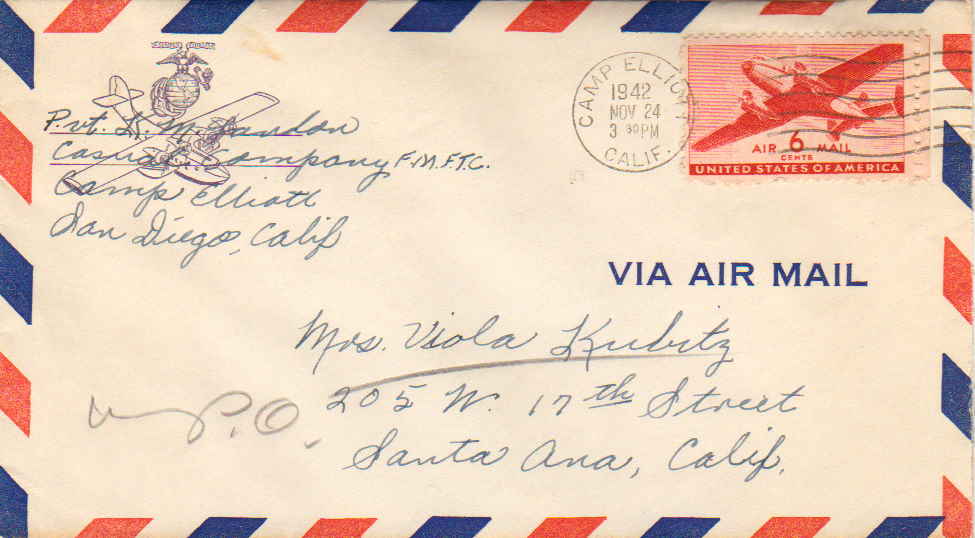 Pvt. L. M. Landon
Casual Company F.M.F.T.C.
Camp Elliott
San Diego, Calif
CAMP ELLIOTT
1942
NOV 24
3 30 PM
CALIF.
AIR 6 MAIL
CENTS
UNITED STATES OF AMERICA
VIA AIR MAIL
Mrs. Viola Kubitz
205 W. 17th Street
P.O.
Santa Ana, Calif.